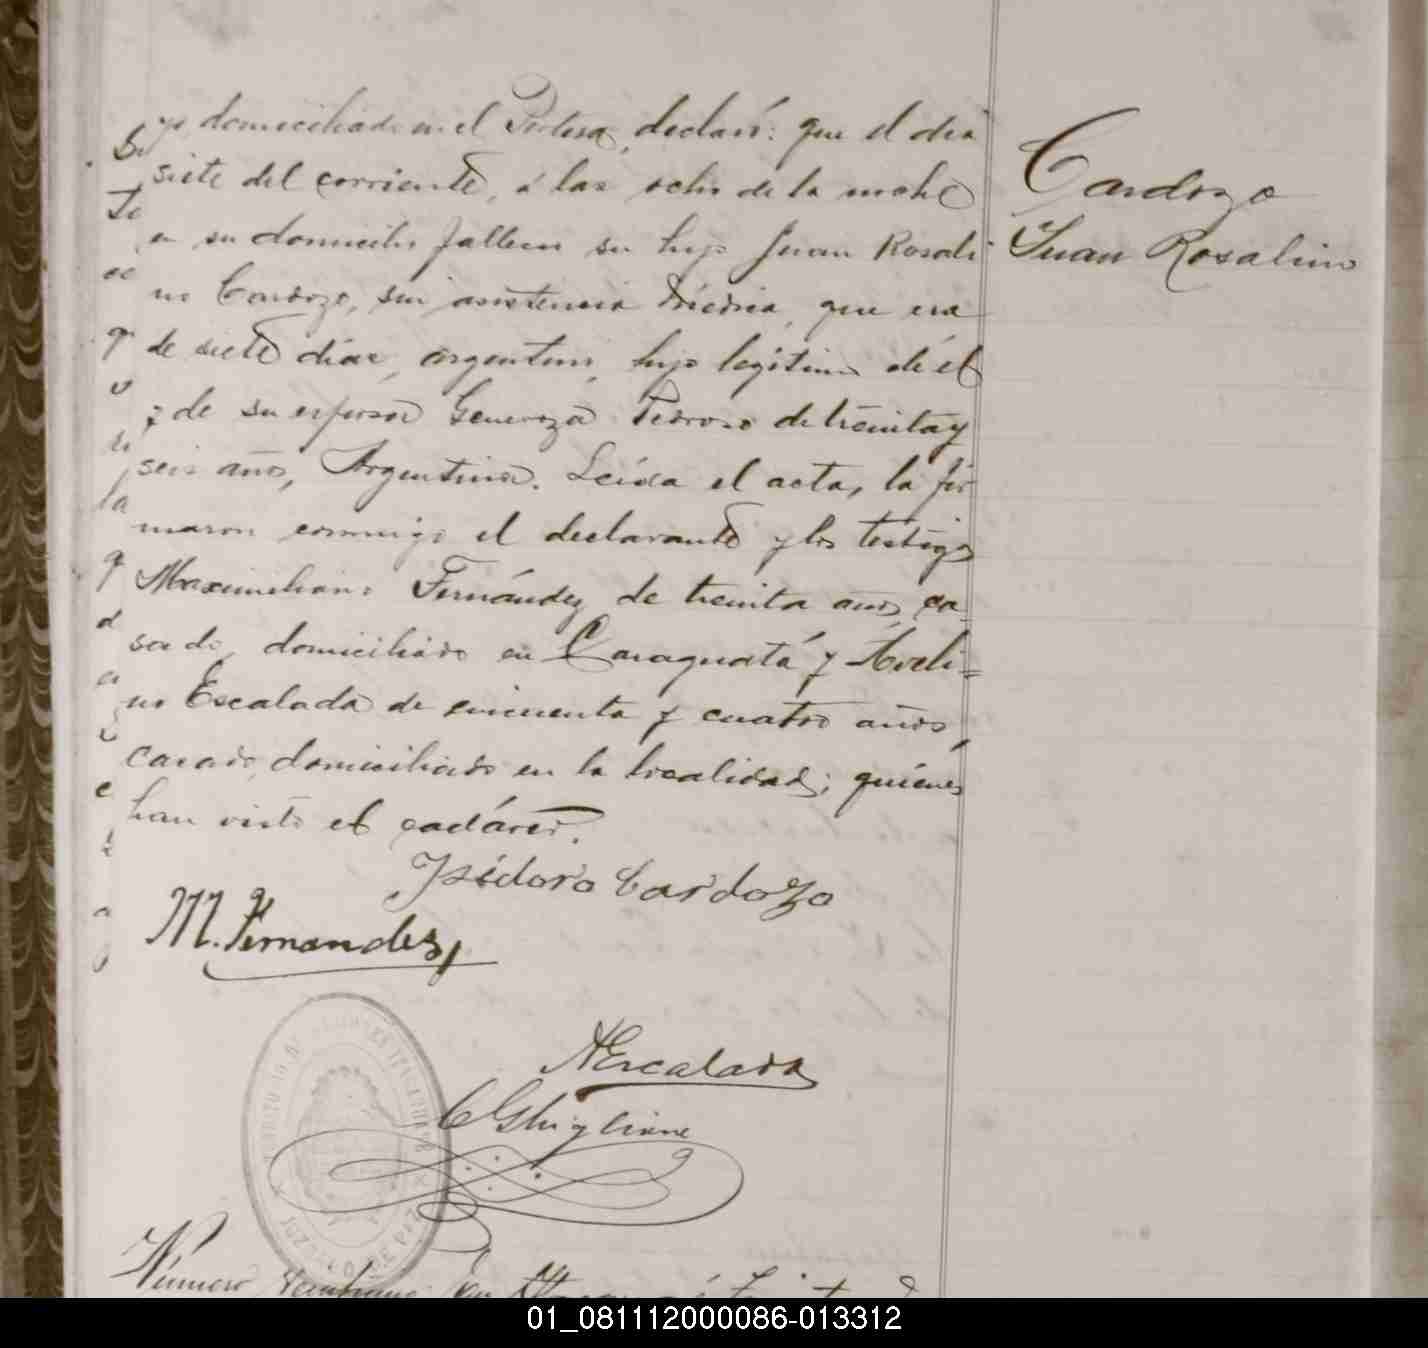 yo, domiciliado en el Potrero, declaró: que el dia
siete del corriente, á las ocho de la noche
en su domicilio fallecio su hijo Juan Rosali
no Cardozo, sin asistencia médica, que era
de siete días, argentino, hijo legítimo de él
y de su esposa Generoza Pedroso de treinta y
seis años, Argentina. Leída el acta, la fir
maron conmigo el declarante y los testigos
Maximiliano Fernández de treinta años, ca
sado, domiciliado en Caraguatá y Aveli=
no Escalada de cincuenta y cuatro años,
casado, domiciliado en la localidad; quiénes
han visto el cadáver.
Isidoro Cardozo
M. Fernandez
AEscalada
C Ghiglione
JUZGADO DE PAZ
Número
Cardozo
Juan Rosalino
01_081112000086-013312